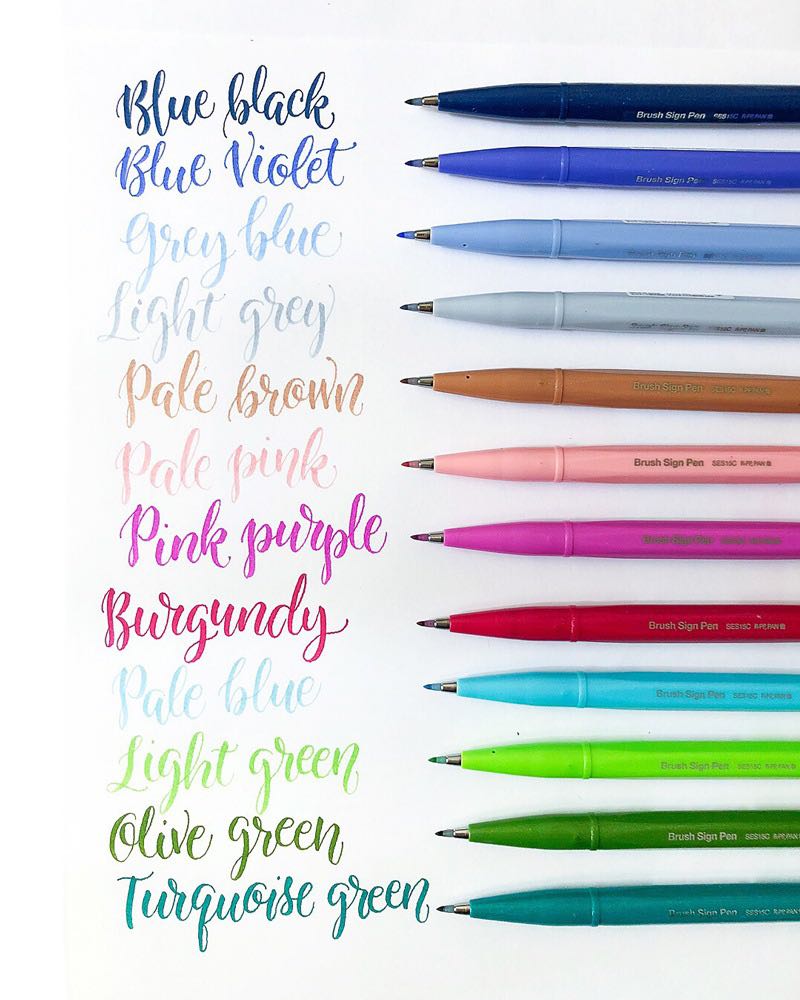 Blue black
Brush Sign Pen SES15C
Blue Violet
Brush Sign Pen SES15C
Grey blue
Light grey
Pale brown
Brush Sign Pen SES15C
Pale pink
Brush Sign Pen SES15C
Pink purple
Brush Sign Pen
Burgundy
Brush Sign Pen SES15C
Pale blue
Brush Sign Pen SES15C
Light green
Brush Sign Pen SES15C
Olive green
Brush Sign Pen SES15C
Turquoise green
Brush Sign Pen SES15C